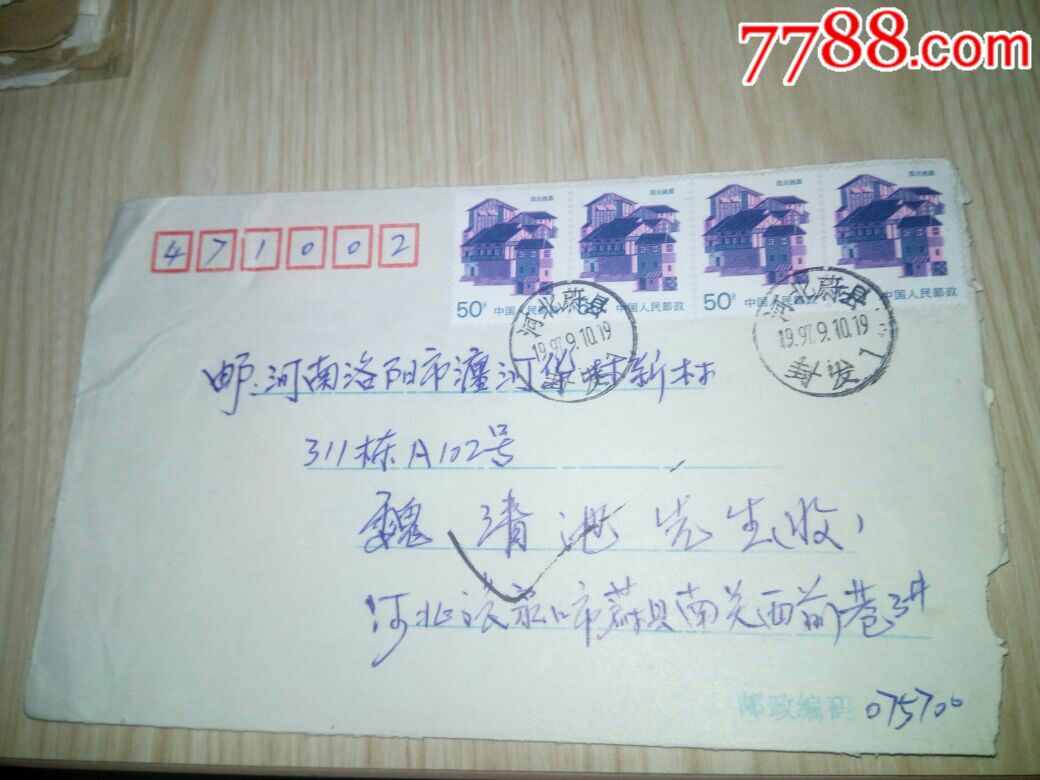 7788.com
四川民居 四川民居 四川民居 四川民居
471002
50分 中国人民邮政 50分 中国人民邮政 50分 中国人民邮政 50分 中国人民邮政
河北蔚县 1997.9.10.19 封发
河北蔚县 1997.9.10.19 封发
邮:河南洛阳市瀍河 新村
311栋A102号
魏清 先生(收)
河北 张家口市蔚县南关西前巷3#
邮政编码 075700